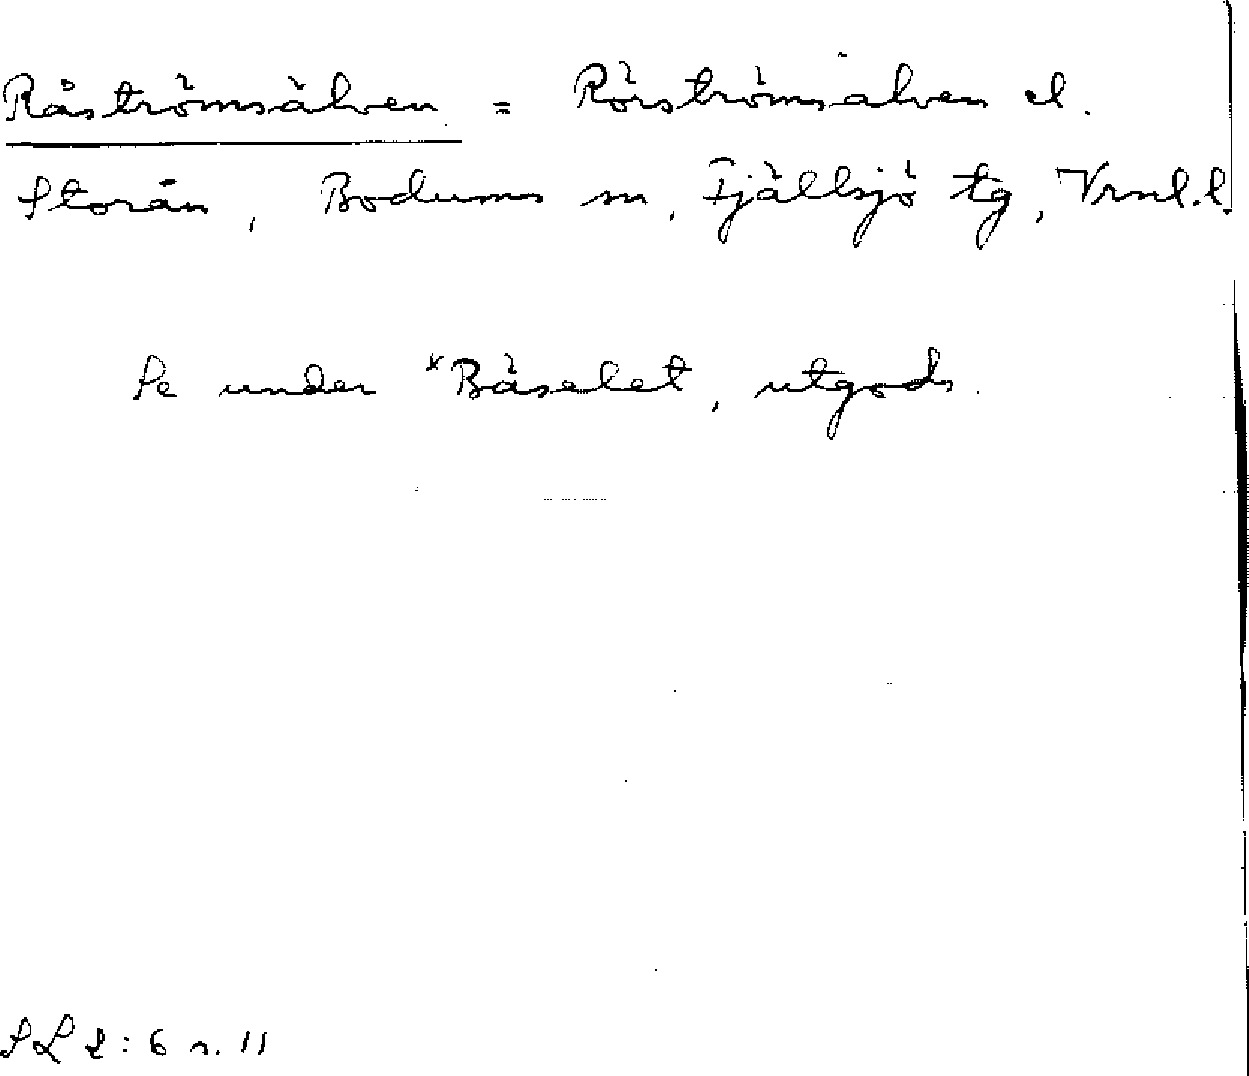 Råströmsälven = Rörströmsälven el.
Storån, Bodums sn, Fjällsjö tg, Vrnl.l.
Se under *Båselet, utgods.
SL 2:6 s. 11